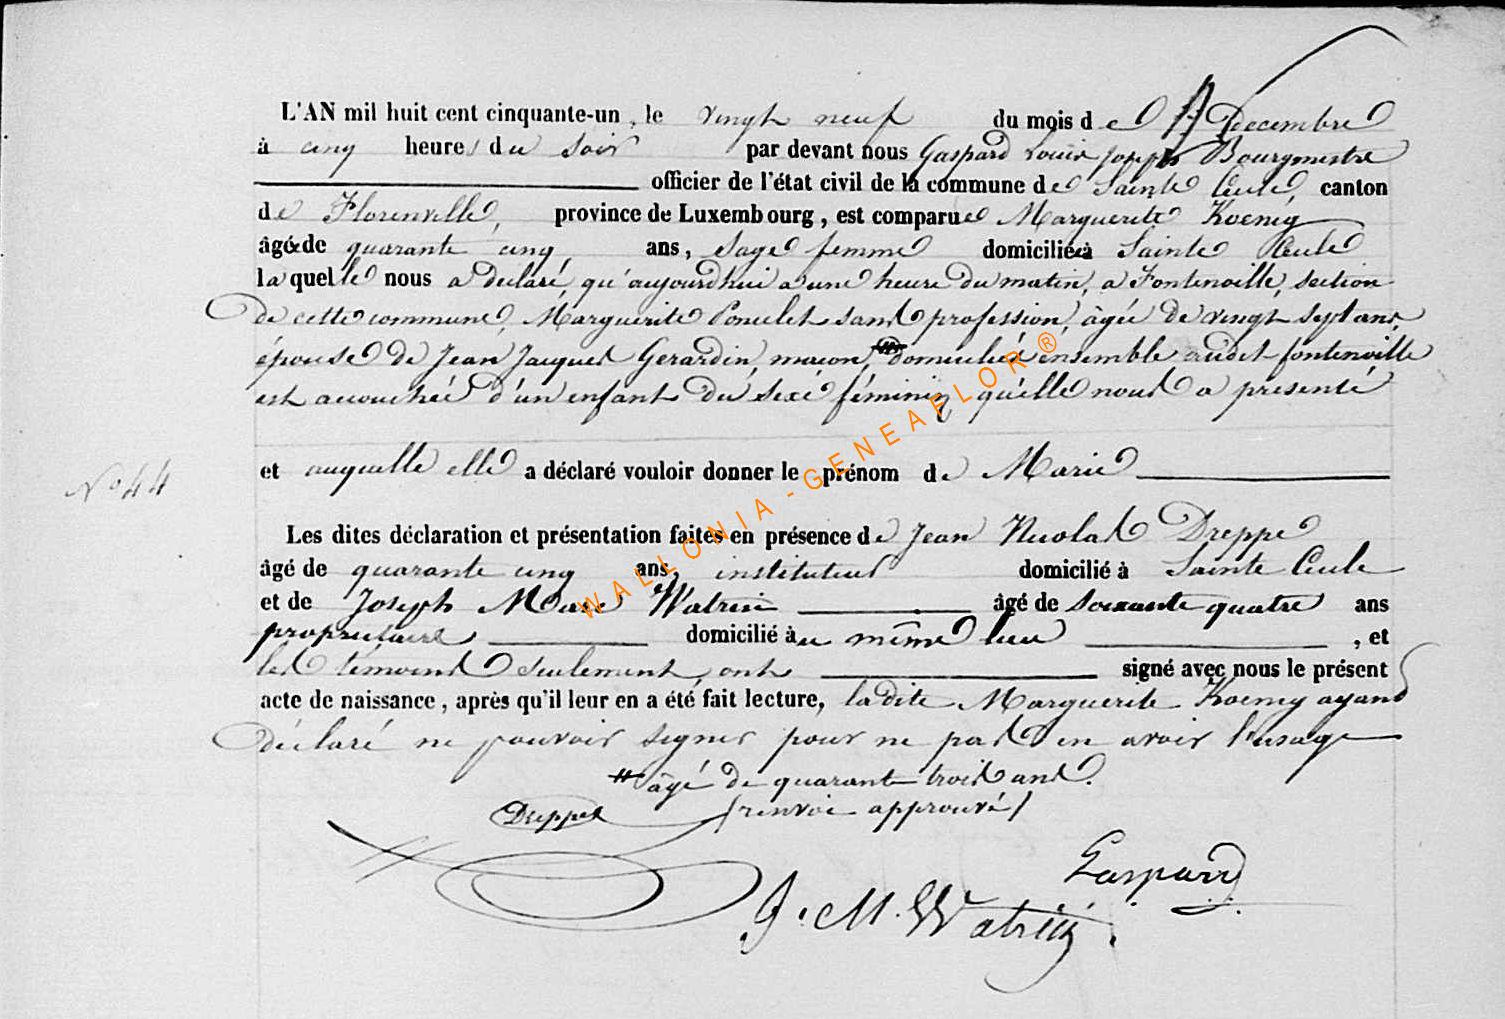 L'AN mil huit cent cinquante-un, le vingt neuf du mois de Decembre
à cinq heures du soir par devant nous Gaspard Louis Joseph Bourgmestre
officier de l'état civil de la commune de Sainte Cecile, canton
de Florenville, province de Luxembourg, est comparue Marguerite Koenig
âgée de quarante cinq ans, sage femme domiciliée à Sainte Cecile
laquelle nous a declaré qu'aujourd'hui a une heure du matin, a Fontenoille, section
de cette commune, Marguerite Poncelet sans profession, âgée de vingt sept ans,
épouse de Jean Jacques Gerardin, macon, # domiciliés ensemble audit fontenoille
est accouchée d'un enfant du sexe féminin qu'elle nous a présenté
N° 44
et auquelle elle a déclaré vouloir donner le prénom de Marie
Les dites déclaration et présentation faites en présence de Jean Nicolas Dreppe
âgé de quarante cinq ans, instituteur domicilié à Sainte Cecile
et de Joseph Marc Watrin âgé de soixante quatre ans
propriétaire domicilié au même lieu, et
les témoins seulement ont signé avec nous le présent
acte de naissance, après qu'il leur en a été fait lecture, ladite Marguerite Koenig ayant
déclaré ne pouvoir signer pour ne pas en avoir l'usage
# âgé de quarante trois ans.
Dreppe (renvoi approuvé)
Gaspard
J. M. Watrin
WALLONIA - GENEAFLOR ®